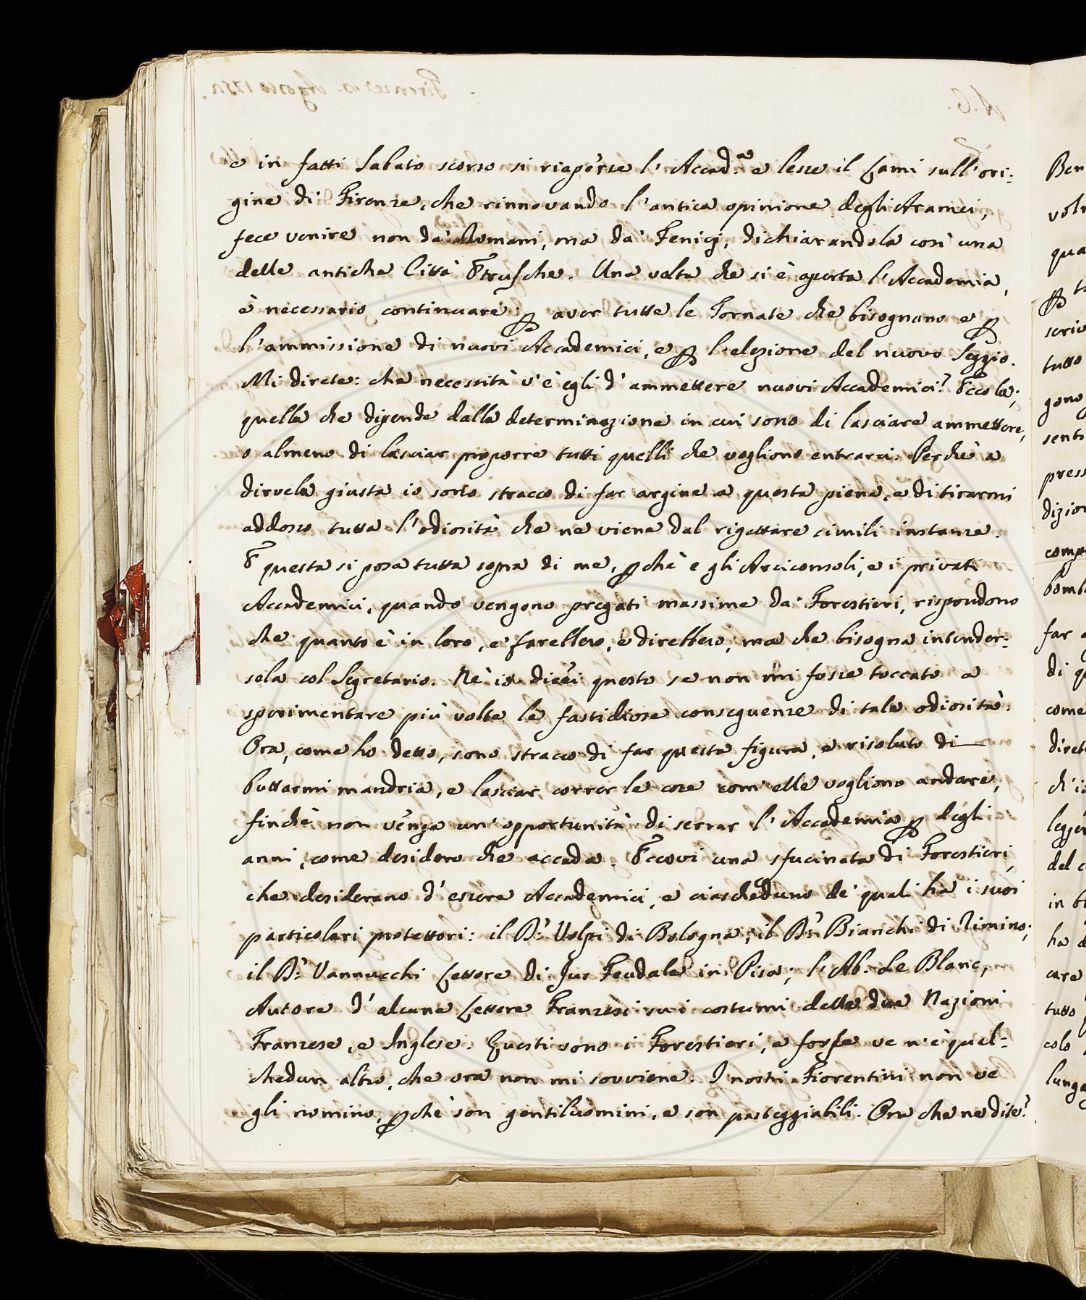 e in fatti Sabato scorso si riaperse l'Accad.ª e lesse il Lami sull'ori:
gine di Firenze, che rinnovando l'antica opinione degli Aramei,
fece venire non da' Romani, ma da' Fenicj, dichiarandola così una
delle antiche Città Etrusche. Una volta che si è aperta l'Accademia,
è necessario continuare p aver tutte le Tornate che bisognano e p
l'ammissione di nuovi Accademici, e p l'elezione del nuovo Seggio.
Mi direte: che necessità v'è egli d'ammettere nuovi Accademici? Eccola;
quella che dipende dalla determinazione in cui sono di lasciare ammettere,
o almeno di lasciar proporre tutti quelli che vogliono entrarci. Perchè a
dirvela giusta io sono stracco di far argine a questa piena, e di tirarmi
addosso tutta l'odiosità che ne viene dal rigettare simili instanze.
E questa si posa tutta sopra di me, pchè e gli Arciconsoli, e i privati
Accademici, quando vengono pregati massime da' Forestieri, rispondono
che quanto è in loro, e' farebbero, e' direbbero; ma che bisogna intender:
sela col Segretario. Nè io direi questo se non mi fosse toccato a
sperimentare più volte le fastidiose conseguenze di tale odiosità.
Ora, come ho detto, sono stracco di far questa figura, e risoluto di
buttarmi mandria, e lasciar correr le cose com'elle vogliono andare,
finchè non venga un'opportunità di serrar l'Accademia p degli
anni, come desidero che accada. Eccovi una sfucinata di Forestieri,
che desiderano d'essere Accademici, e ciascheduno de' quali ha i suoi
particolari protettori: il D.r Volpi di Bologna; il D.r Bianchi di Rimino;
il D.r Vannucchi Lettore di Jus Feudale in Pisa; l'Ab. Le Blanc,
Autore d'alcune Lettere Franzesi sui costumi delle due Nazioni
Franzese, e Inglese. Questi sono i Forestieri, e forse ve n'è qual:
chedun altro, che ora non mi sovviene. I nostri Fiorentini non ve
gli nomino, pchè son gentiluomini, e son passeggiabili. Ora che ne dite?